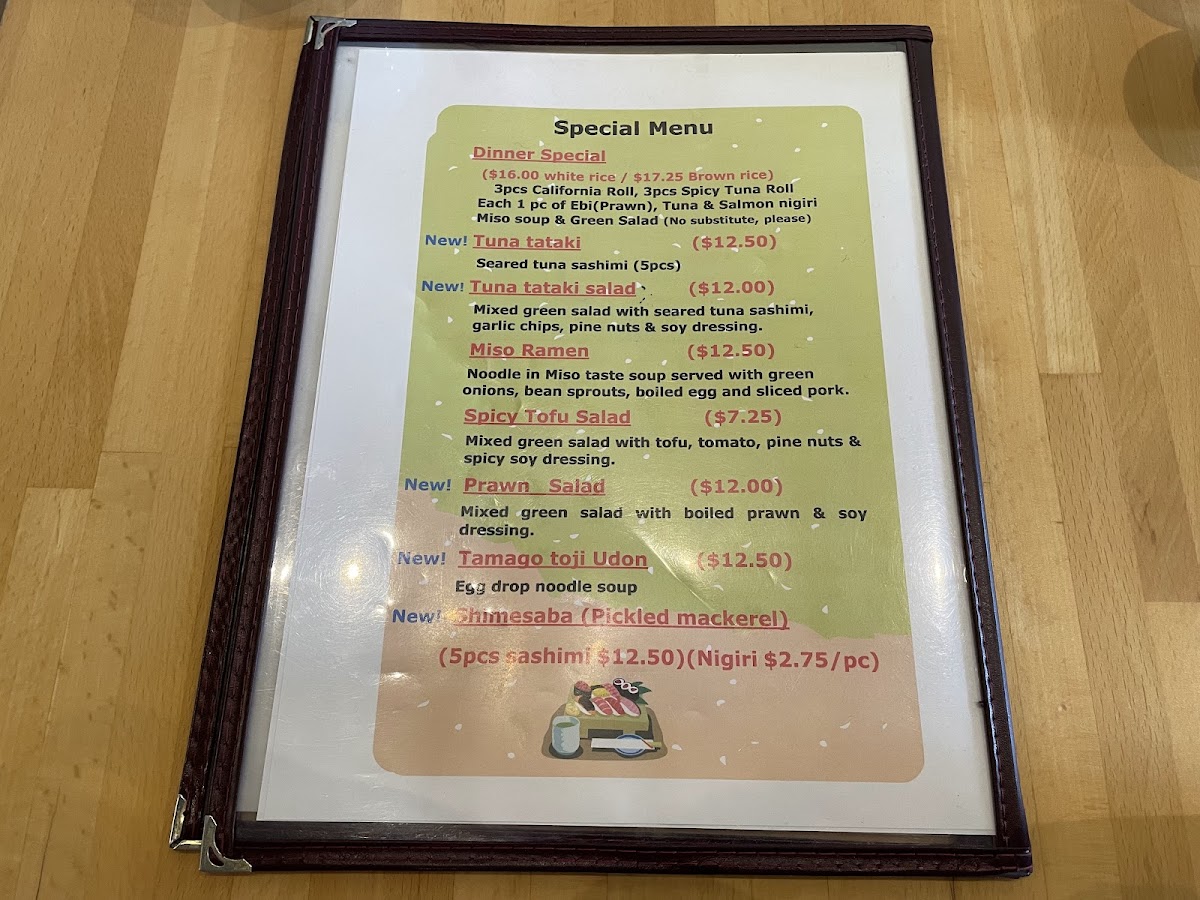 Special Menu
Dinner Special
($16.00 white rice / $17.25 Brown rice)
3pcs California Roll, 3pcs Spicy Tuna Roll
Each 1 pc of Ebi(Prawn), Tuna & Salmon nigiri
Miso soup & Green Salad (No substitute, please)
New! Tuna tataki ($12.50)
Seared tuna sashimi (5pcs)
New! Tuna tataki salad ($12.00)
Mixed green salad with seared tuna sashimi,
garlic chips, pine nuts & soy dressing.
Miso Ramen ($12.50)
Noodle in Miso taste soup served with green
onions, bean sprouts, boiled egg and sliced pork.
Spicy Tofu Salad ($7.25)
Mixed green salad with tofu, tomato, pine nuts &
spicy soy dressing.
New! Prawn Salad ($12.00)
Mixed green salad with boiled prawn & soy
dressing.
New! Tamago toji Udon ($12.50)
Egg drop noodle soup
New! Shimesaba (Pickled mackerel)
(5pcs sashimi $12.50)(Nigiri $2.75/pc)